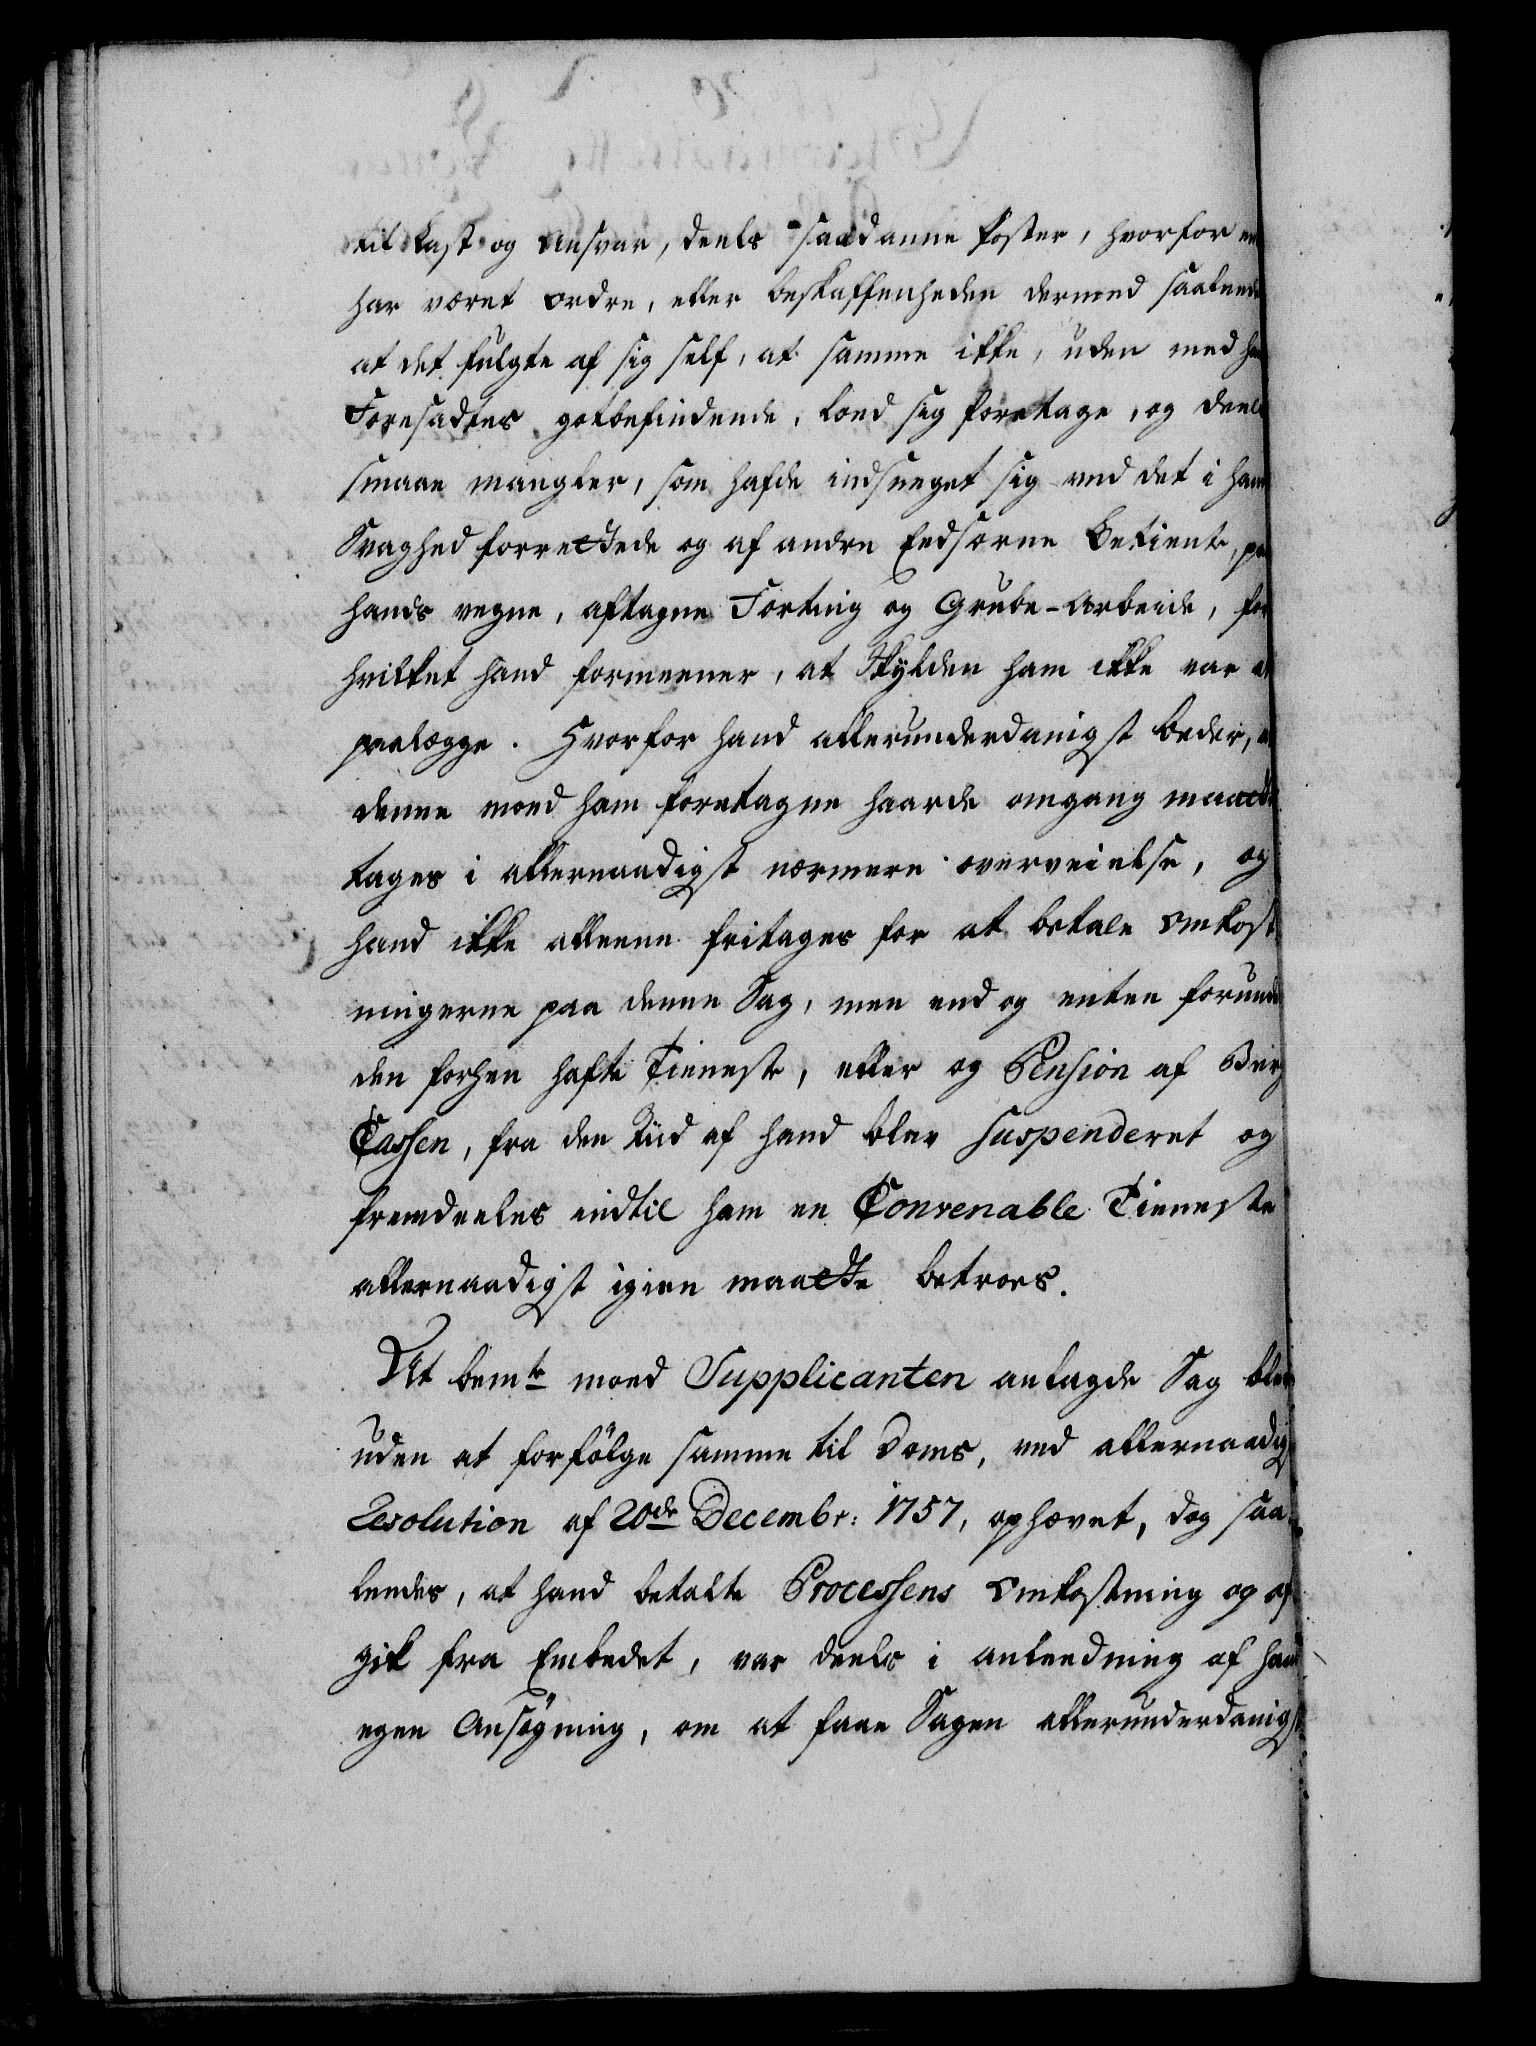 til Last og Ansvar, deels saadanne Poster, hvorfor
har været ordre, eller beskaffenheden dermed saaleedes
at det fulgte af sig self, at samme ikke, uden med
Foresadtes gotbefindende, loed sig foretage, og deels
smaae mangler, som hafde indsneget sig ved det i hans
Svaghed forrettede og af andre Eedsorne Betiente, paa
hands vegne, aftagne Forting og Grube-Arbeide, for
hvilket hand formeener, at Skylden ham ikke var at
paalægge. Hvorfor hand allerunderdanigst beder, at
denne moed ham foretagne haarde omgang maatte
tages i allernaadigst nærmere overveielse, og
hand ikke alleene fritages for at betale Omkost
ningerne paa denne Sag, men end og enten forundes
den forhen hafte Tieneste, eller og Pension af Berg
Cassen, fra den Tiid af hand blev suspenderet og
fremdeeles indtil ham en Convenable Tieneste
allernaadigst igien maatte betroes.
At bemte moed Supplicanten anlagde Sag blev
uden at forfölge samme til Doms, ved allernaadigst
Resolution af 20de Decembr: 1757, ophævet, dog saa-
leedes, at hand betalte Processens Omkostning og af
gik fra Embedet, var deels i anleedning af hans
egen Ansögning, om at faae Sagen allerunderdanigst